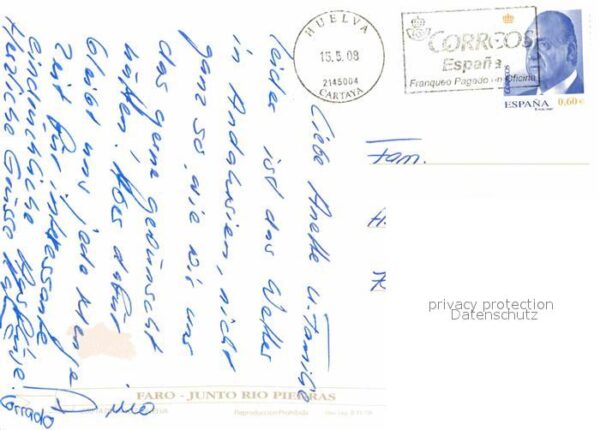 HUELVA
15.5.08
2145004
CARTAYA
CORREOS
España
Franqueo Pagado en Oficina
CORREOS
ESPAÑA 0,60€
Fam.
privacy protection
Datenschutz
Liebe Anette u. Familie
leider ist das Wetter
in Andalusien, nicht
ganz so, wie wir uns
das gerne gewünscht
hätten. Aber dafür
bleibt uns jede Menge
Zeit für interessante
eindrückliche Ausflüge.
Herzliche Grüsse
FARO - JUNTO RIO PIEDRAS
Reproducción Prohibida